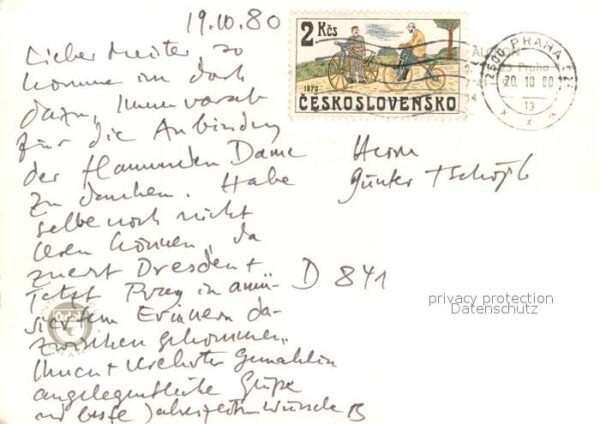 19.10.80
Lieber Meister, so
komme ich doch
dazu, Ihnen
für die Anbindung
der flammenden Dame
zu danken. Habe
selbe noch nicht
lesen können, da
zuerst Dresden +
jetzt Prag in amü-
siertem Erinnern da-
zwischen gekommen.
Ihnen + Gemahlin
angelegentliche Grüße
und beste Wünsche
2 Kčs
1870
ČESKOSLOVENSKO
PRAHA
20.10.80
13
Herrn
Günter
D 841
privacy protection
Datenschutz